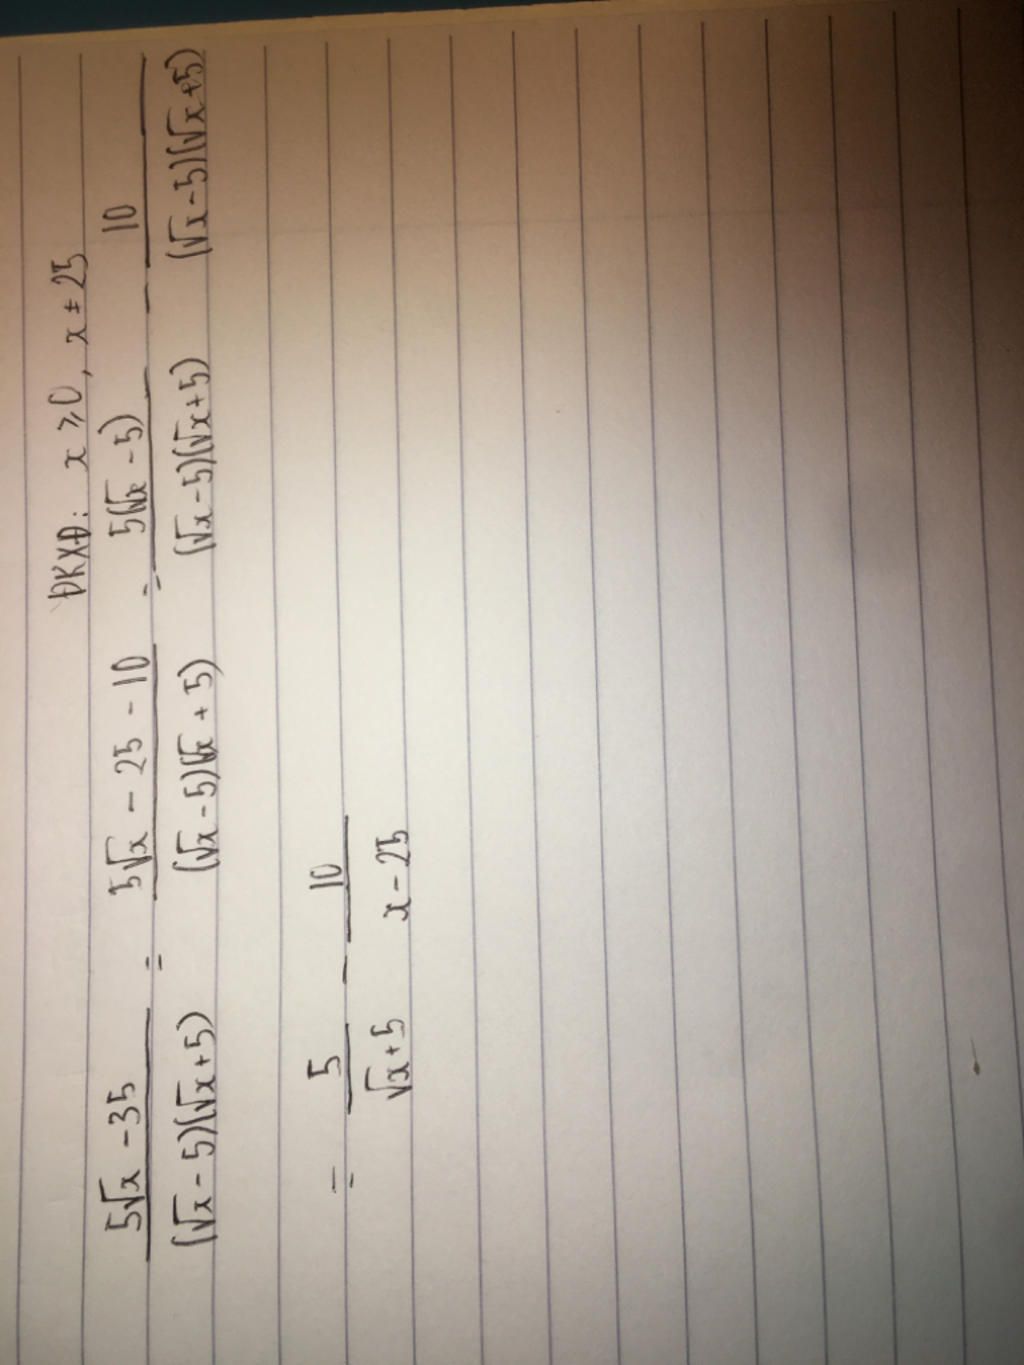 ĐKXĐ: x ⩾ 0, x ≠ 25
(5√x - 35)/((√x - 5)(√x + 5)) = (5√x - 25 - 10)/((√x - 5)(√x + 5)) = (5(√x - 5))/((√x - 5)(√x + 5)) - 10/((√x - 5)(√x + 5))
= 5/(√x + 5) - 10/(x - 25)